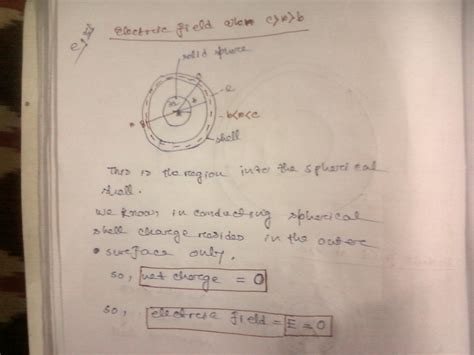 Electric field when c>r>b
solid sphere
a
b
c
b<r<c
shell
This is the region into the spherical
shell.
We know in conducting spherical
shell charge resides in the outer
surface only.
so, net charge = 0
so, electric field = E = 0